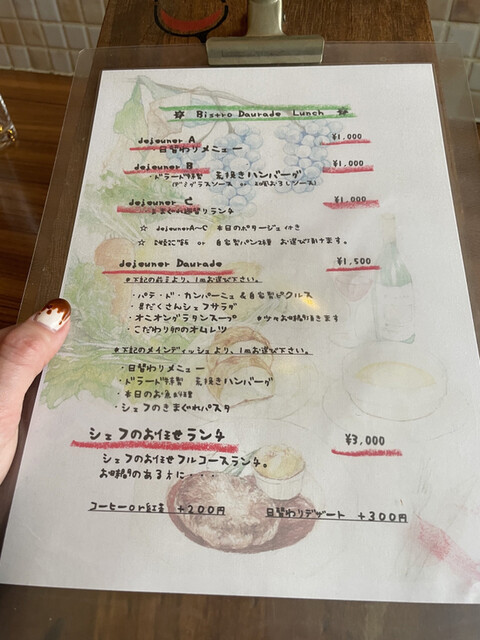 ☆ Bistro Daurade Lunch ☆
dejeuner A ¥1,000
日替わりメニュー
dejeuner B ¥1,000
ドラード特製 荒挽きハンバーグ
デミグラスソース or 和風おろしソース
dejeuner C ¥1,000
きまぐれ週替りランチ
☆ dejeunerA~C 本日のポタージュ付き
☆ ご飯 or 自家製パン2種 お選び頂けます。
dejeuner Daurade ¥1,500
※下記の前菜より、1品お選び下さい。
・パテ・ド・カンパーニュ&自家製ピクルス
・具だくさんシェフサラダ
・オニオングラタンスープ ※少々お時間頂きます
・こだわり卵のオムレツ
※下記のメインディッシュより、1品お選び下さい。
・日替わりメニュー
・ドラード特製 荒挽きハンバーグ
・本日のお魚料理
・シェフのきまぐれパスタ
シェフのお任せランチ ¥3,000
シェフのお任せフルコースランチ。
お時間のある方に・・・
コーヒーor紅茶 +200円 日替わりデザート +300円